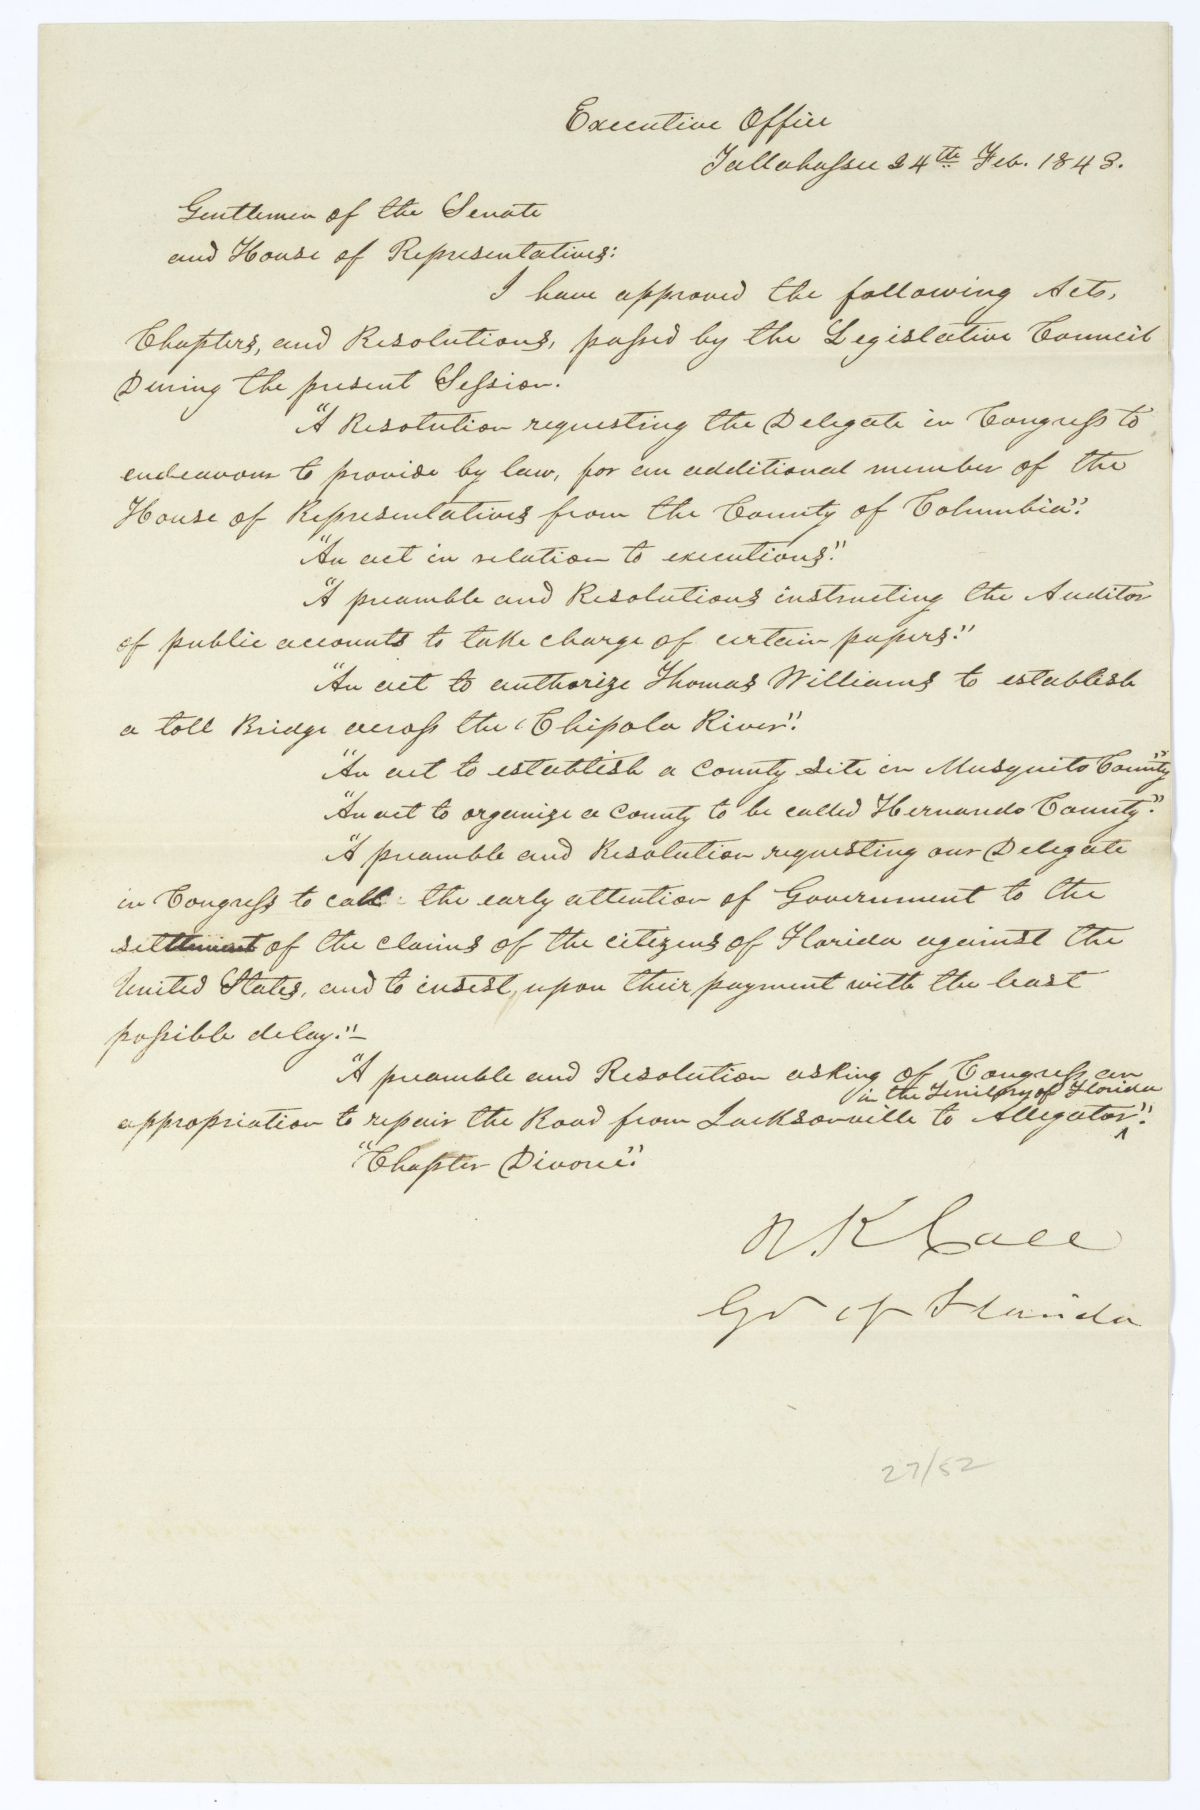 Executive Office
Tallahassee 24th Feb. 1843.
Gentlemen of the Senate
and House of Representatives:
I have approved the following Acts,
Chapters, and Resolutions, passed by the Legislative Council
During the present Session.
"A Resolution requesting the Delegate in Congress to
endeavour to provide by law, for an additional member of the
House of Representatives from the County of Columbia".
"An act in relation to executions."
"A preamble and Resolutions instructing the Auditor
of public accounts to take charge of certain papers."
"An act to authorize Thomas Williams to establish
a toll Bridge across the Chipola River".
"An act to establish a County site in Musquito County"
"An act to organize a County to be called Hernando County".
"A preamble and Resolution requesting our Delegate
in Congress to call the early attention of Government to the
settlement of the claims of the citizens of Florida against the
United States, and to insist, upon their payment with the least
possible delay."–
"A preamble and Resolution asking of Congress an
in the Territory of Florida
appropriation to repair the Road from Jacksonville to Allegator ^".
"Chapter Divorce".
R. K Call
Gov of Florida
27/52